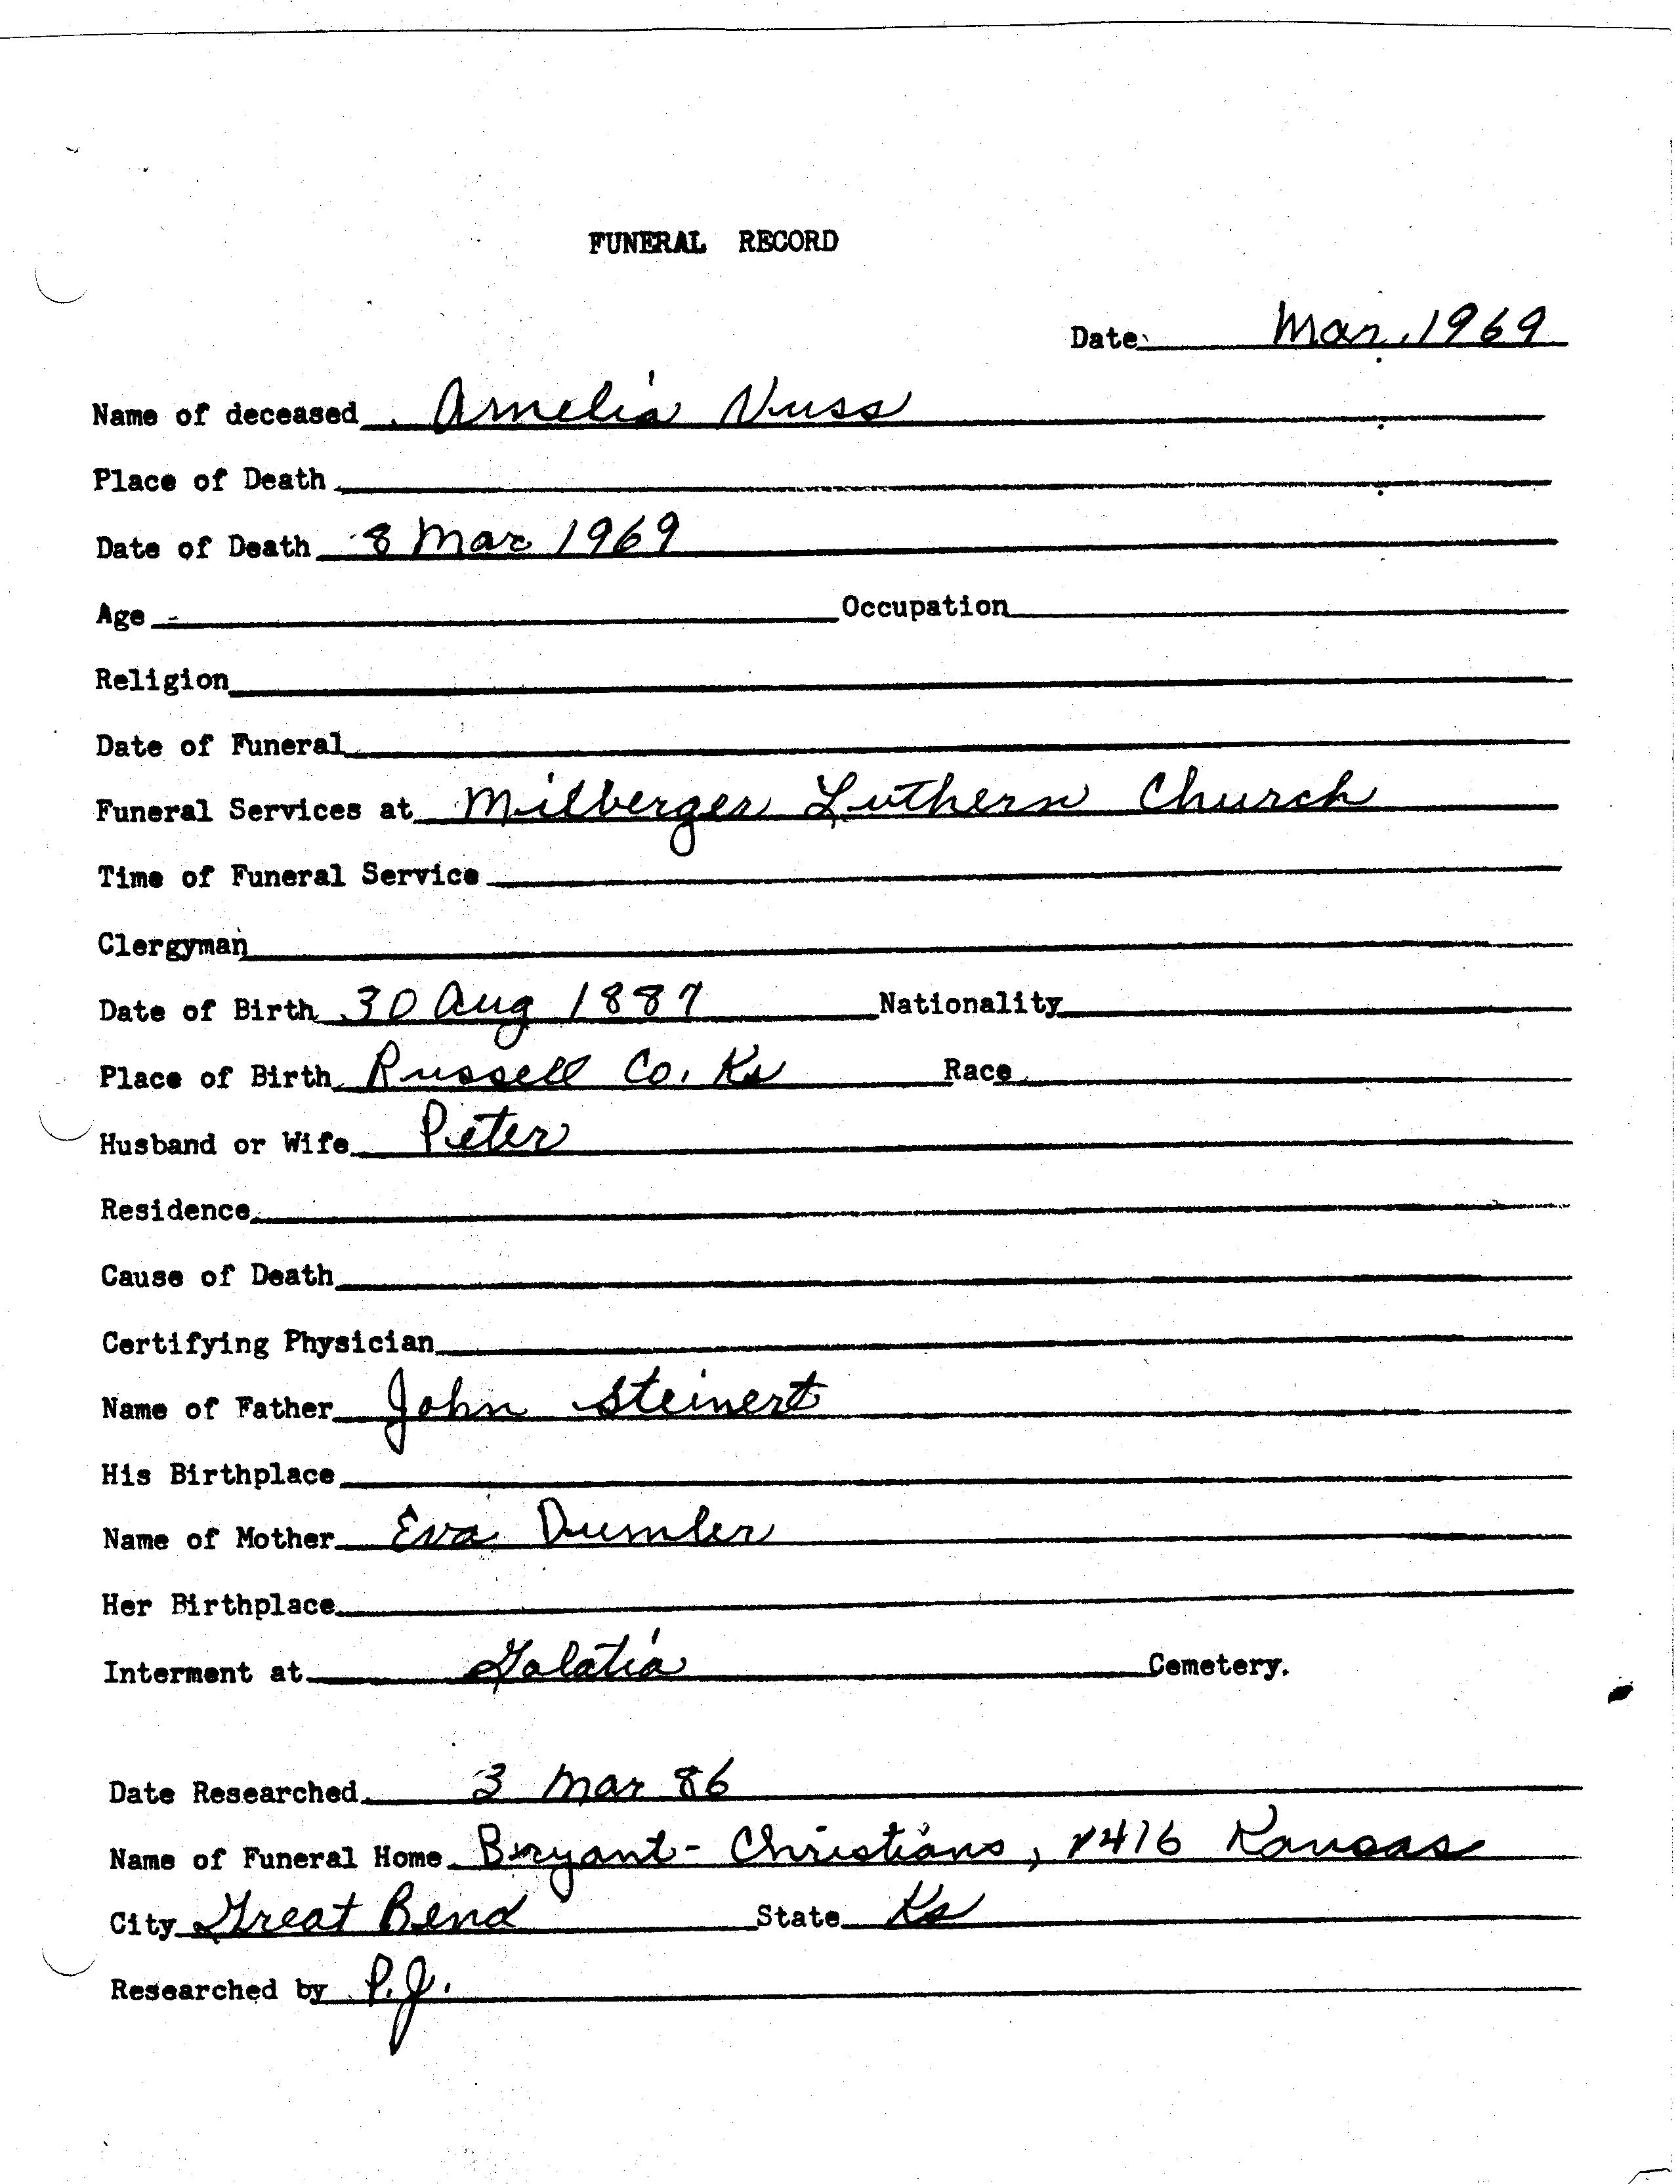 FUNERAL RECORD
Date Mar. 1969
Name of deceased Amelia Nuss
Place of Death
Date of Death 8 Mar 1969
Age Occupation
Religion
Date of Funeral
Funeral Services at Milberger Luthern Church
Time of Funeral Service
Clergyman
Date of Birth 30 Aug 1887 Nationality
Place of Birth Russell Co. Ks Race
Husband or Wife Peter
Residence
Cause of Death
Certifying Physician
Name of Father John Steinert
His Birthplace
Name of Mother Eva Dumler
Her Birthplace
Interment at Galatia Cemetery.
Date Researched 3 Mar 86
Name of Funeral Home Bryant-Christians, Kansas
City Great Bend State Ks
Researched by P.J.